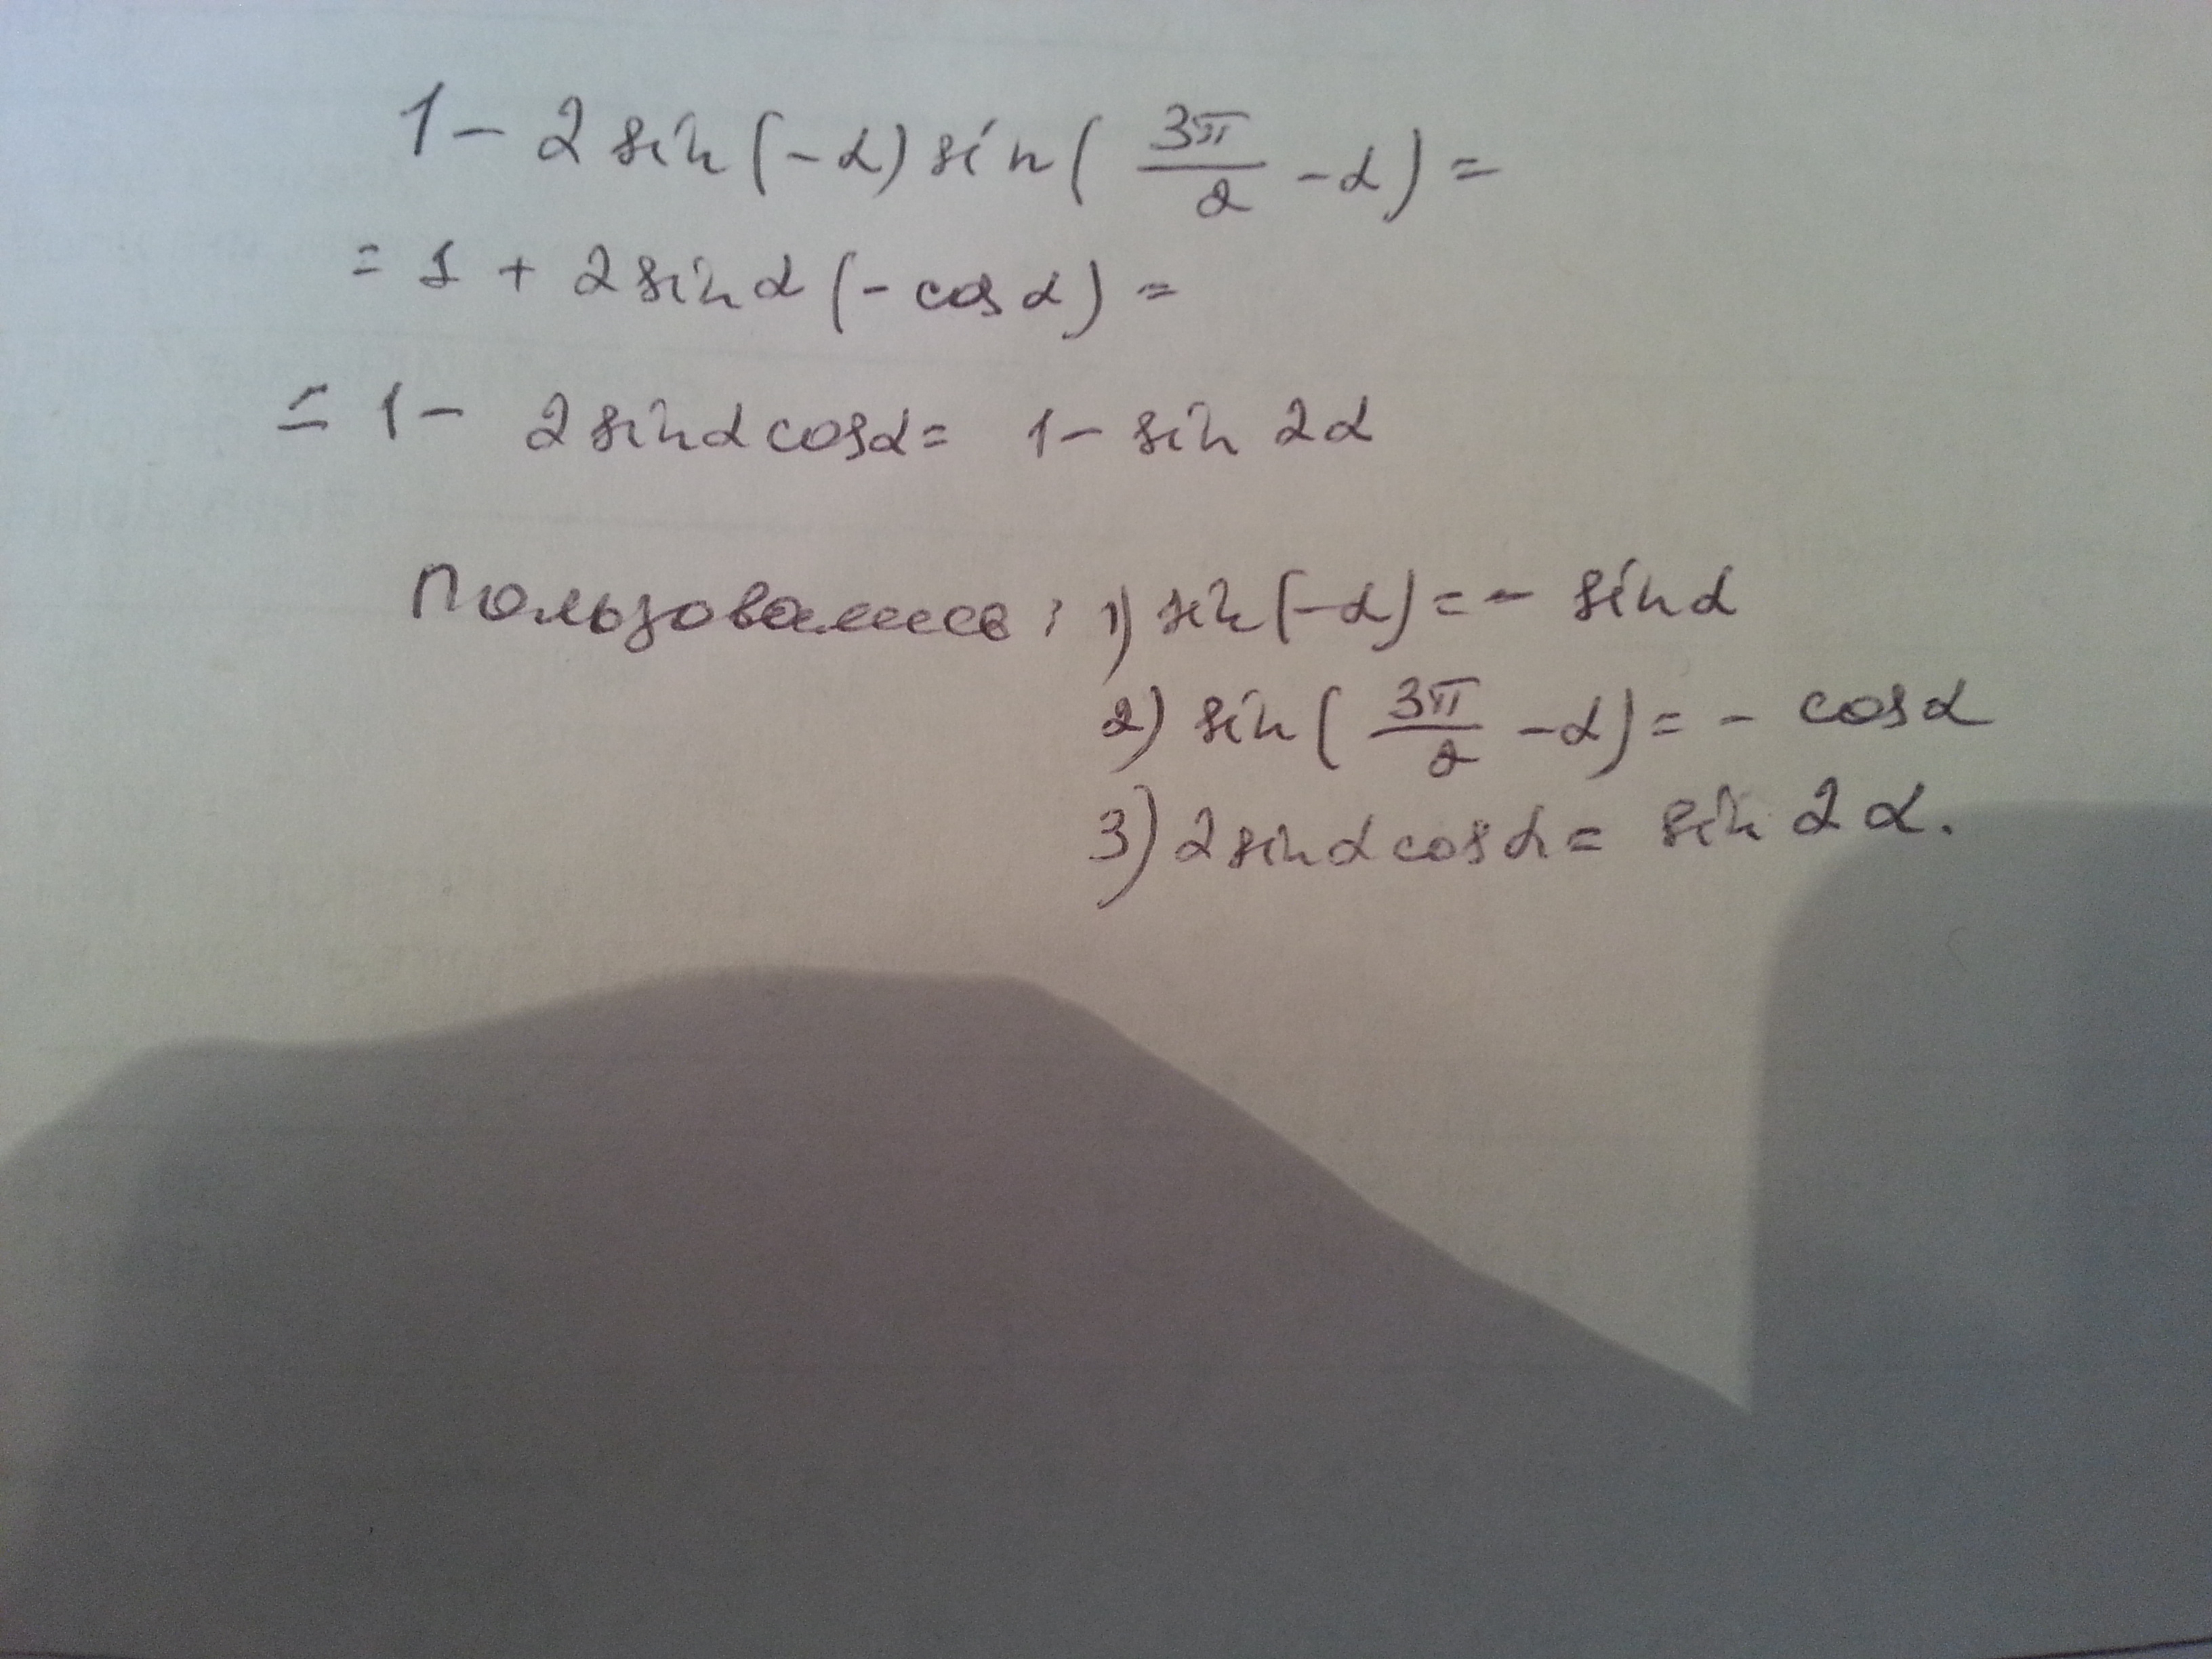 1 - 2 sin(-α) sin(3π/2 - α) =
= 1 + 2 sin α (- cos α) =
= 1 - 2 sin α cos α = 1 - sin 2α
Пользовались: 1) sin(-α) = - sin α
2) sin(3π/2 - α) = - cos α
3) 2 sin α cos α = sin 2α.